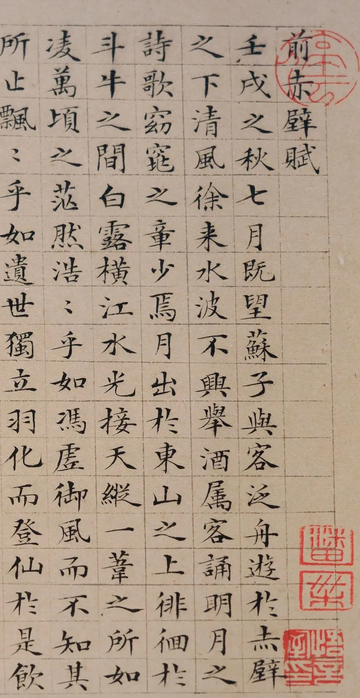 前赤壁賦
壬戌之秋七月既望蘇子與客泛舟遊於赤壁
之下清風徐来水波不興舉酒属客誦明月之
詩歌窈窕之章少焉月出於東山之上徘徊於
斗牛之間白露横江水光接天縱一葦之所如
凌萬頃之茫然浩〻乎如馮虛御風而不知其
所止飄〻乎如遺世獨立羽化而登仙於是飲